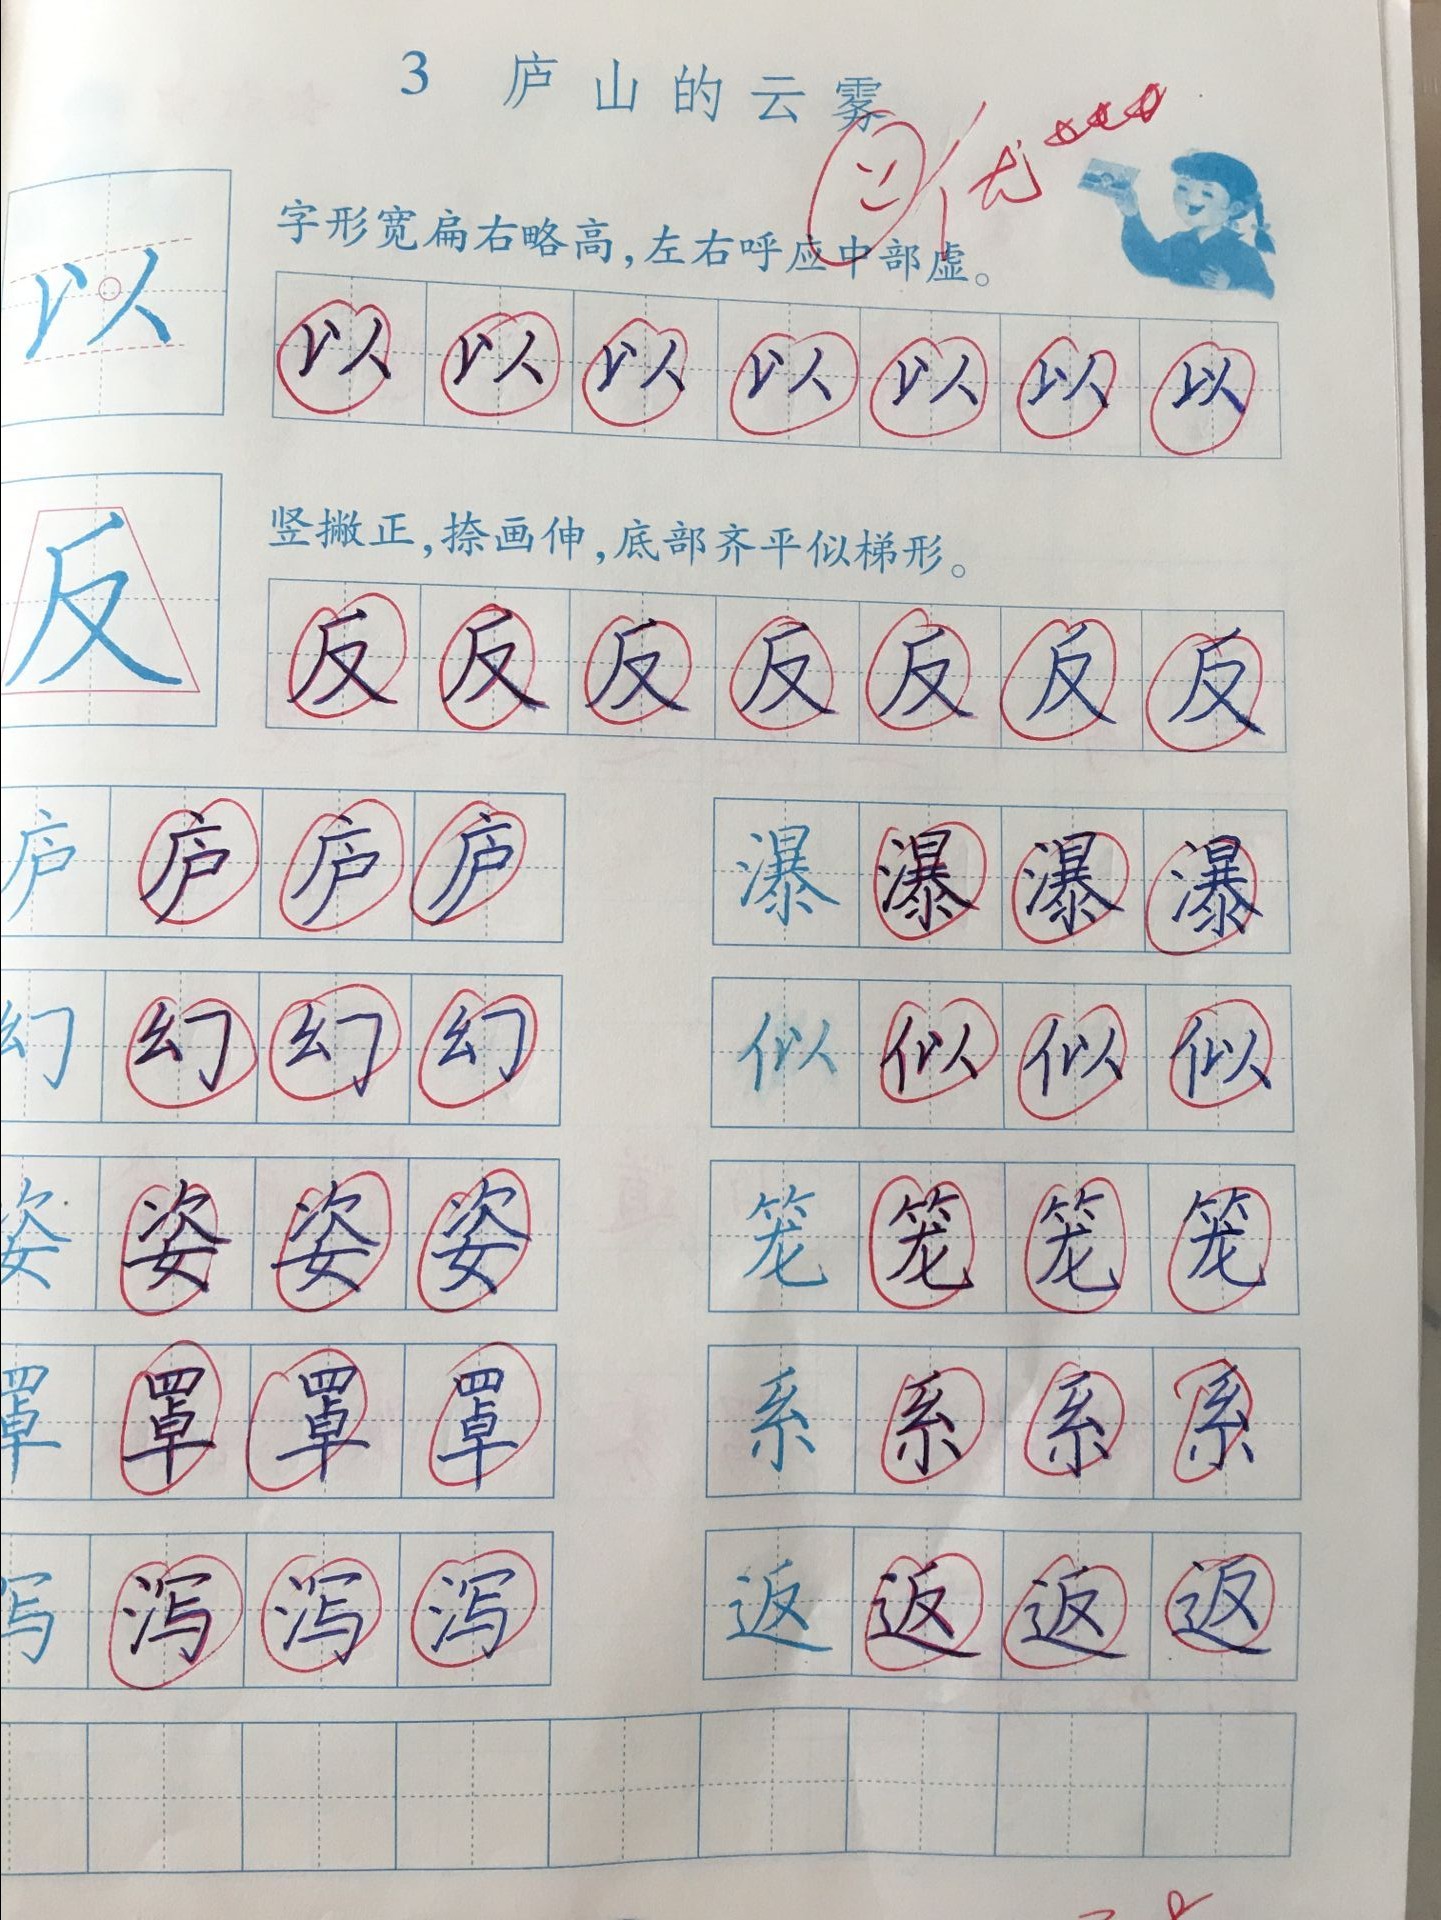 3 庐山的云雾
优
字形宽扁右略高,左右呼应中部虚。
以 以 以 以 以 以 以 以
竖撇正,捺画伸,底部齐平似梯形。
反 反 反 反 反 反 反 反
庐 庐 庐 庐 瀑 瀑 瀑 瀑
幻 幻 幻 幻 似 似 似 似
姿 姿 姿 姿 笼 笼 笼 笼
罩 罩 罩 罩 系 系 系 系
泻 泻 泻 泻 返 返 返 返